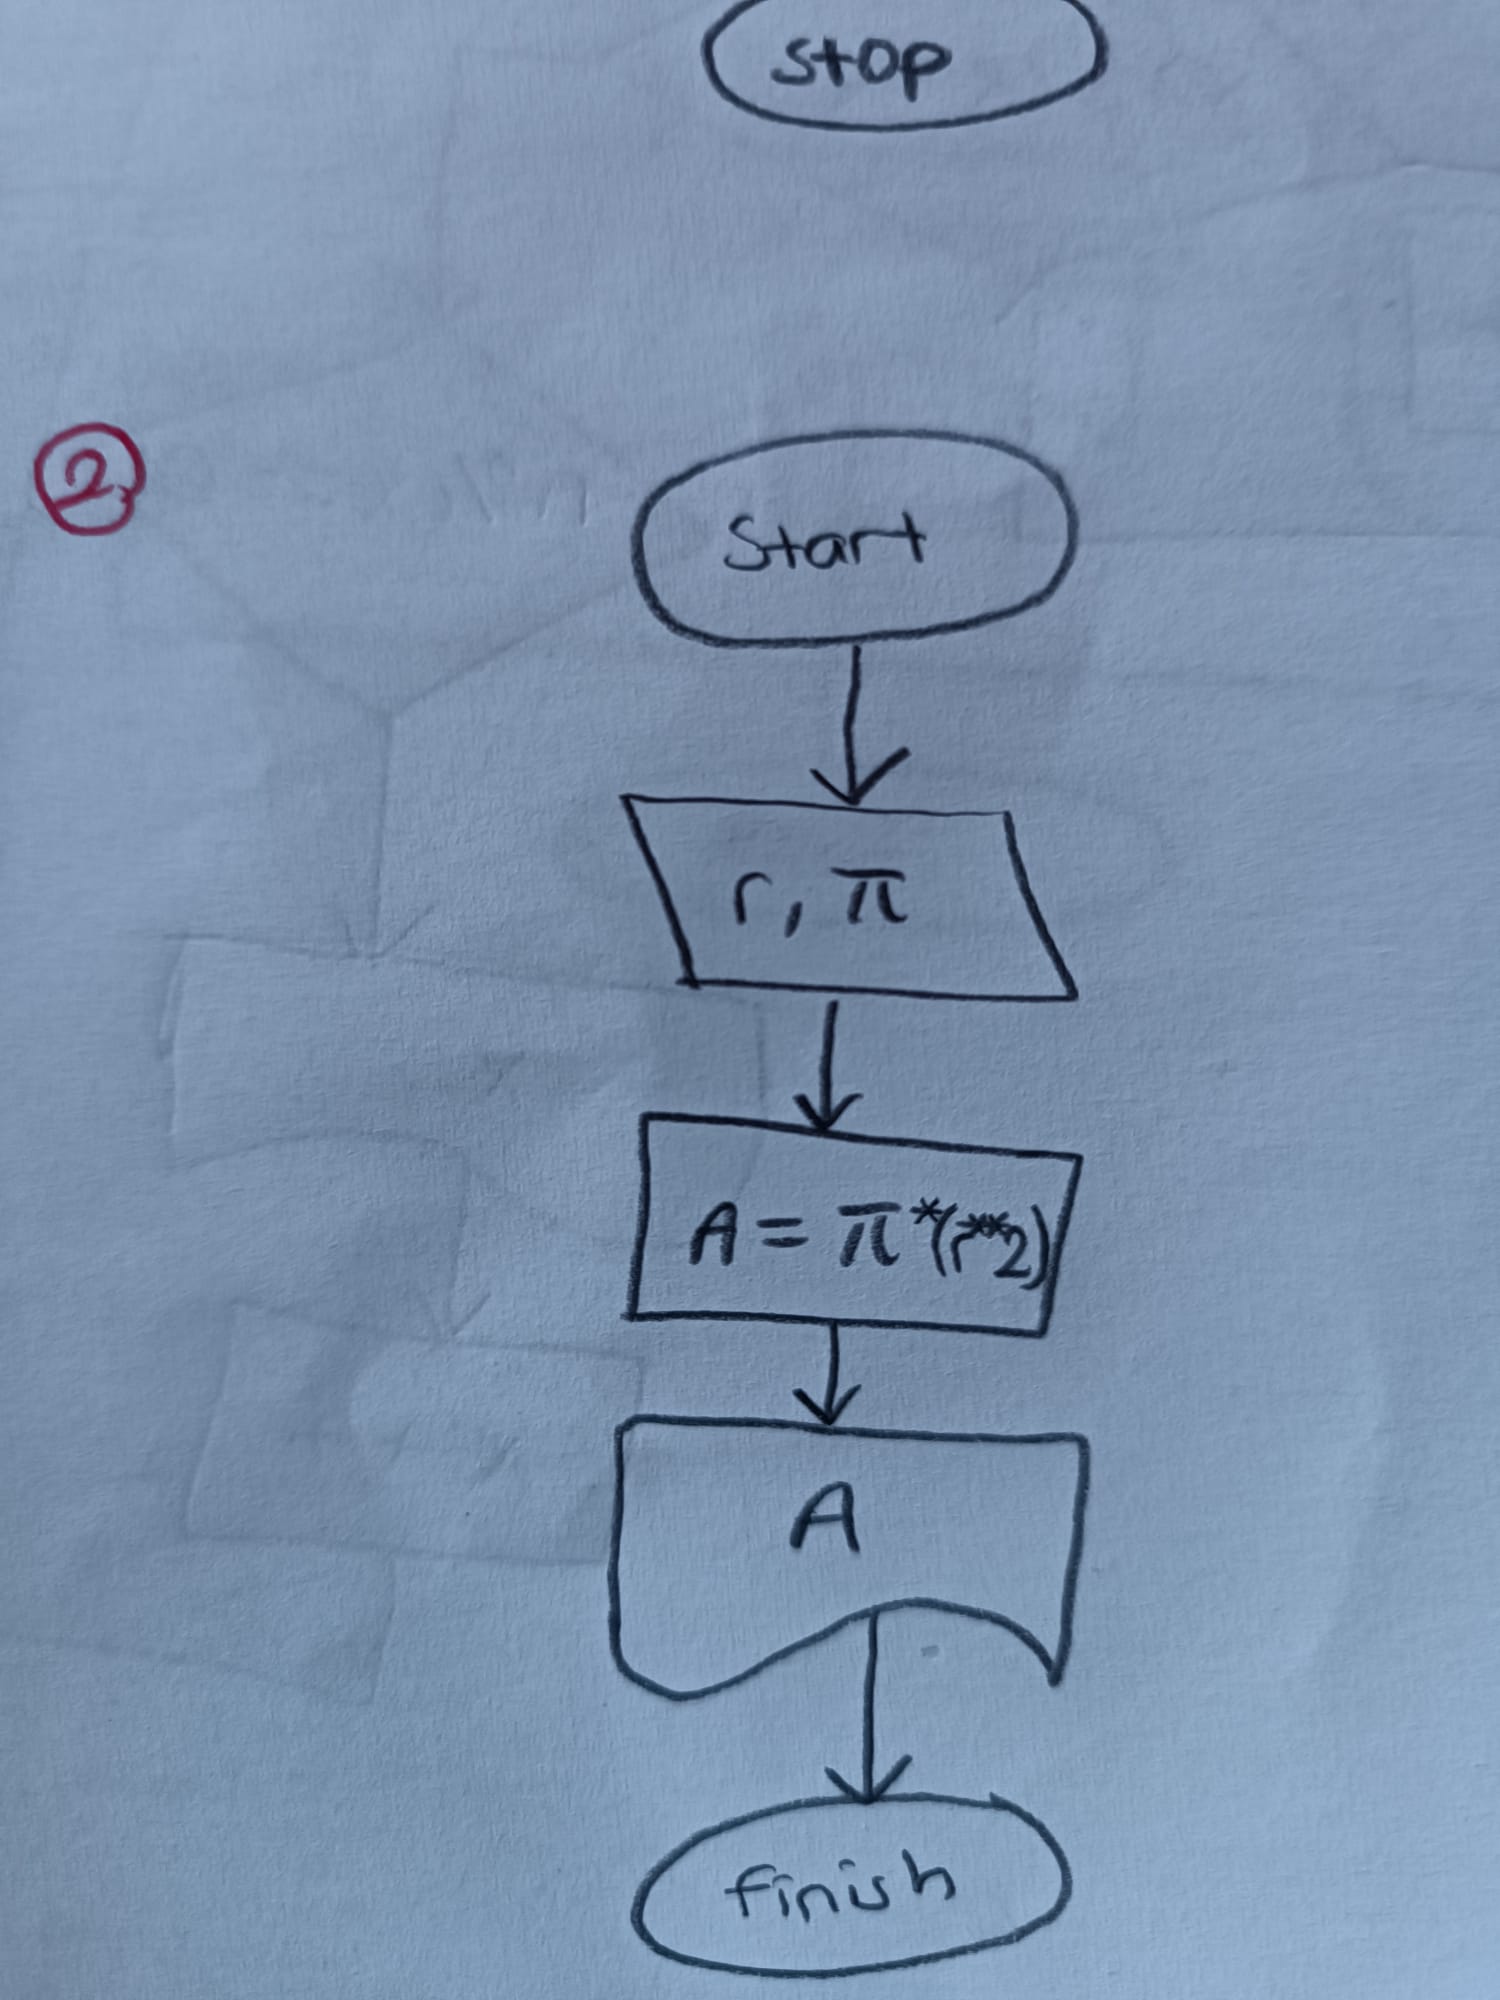 stop
2
Start
r, π
A = π*(r**2)
A
finish